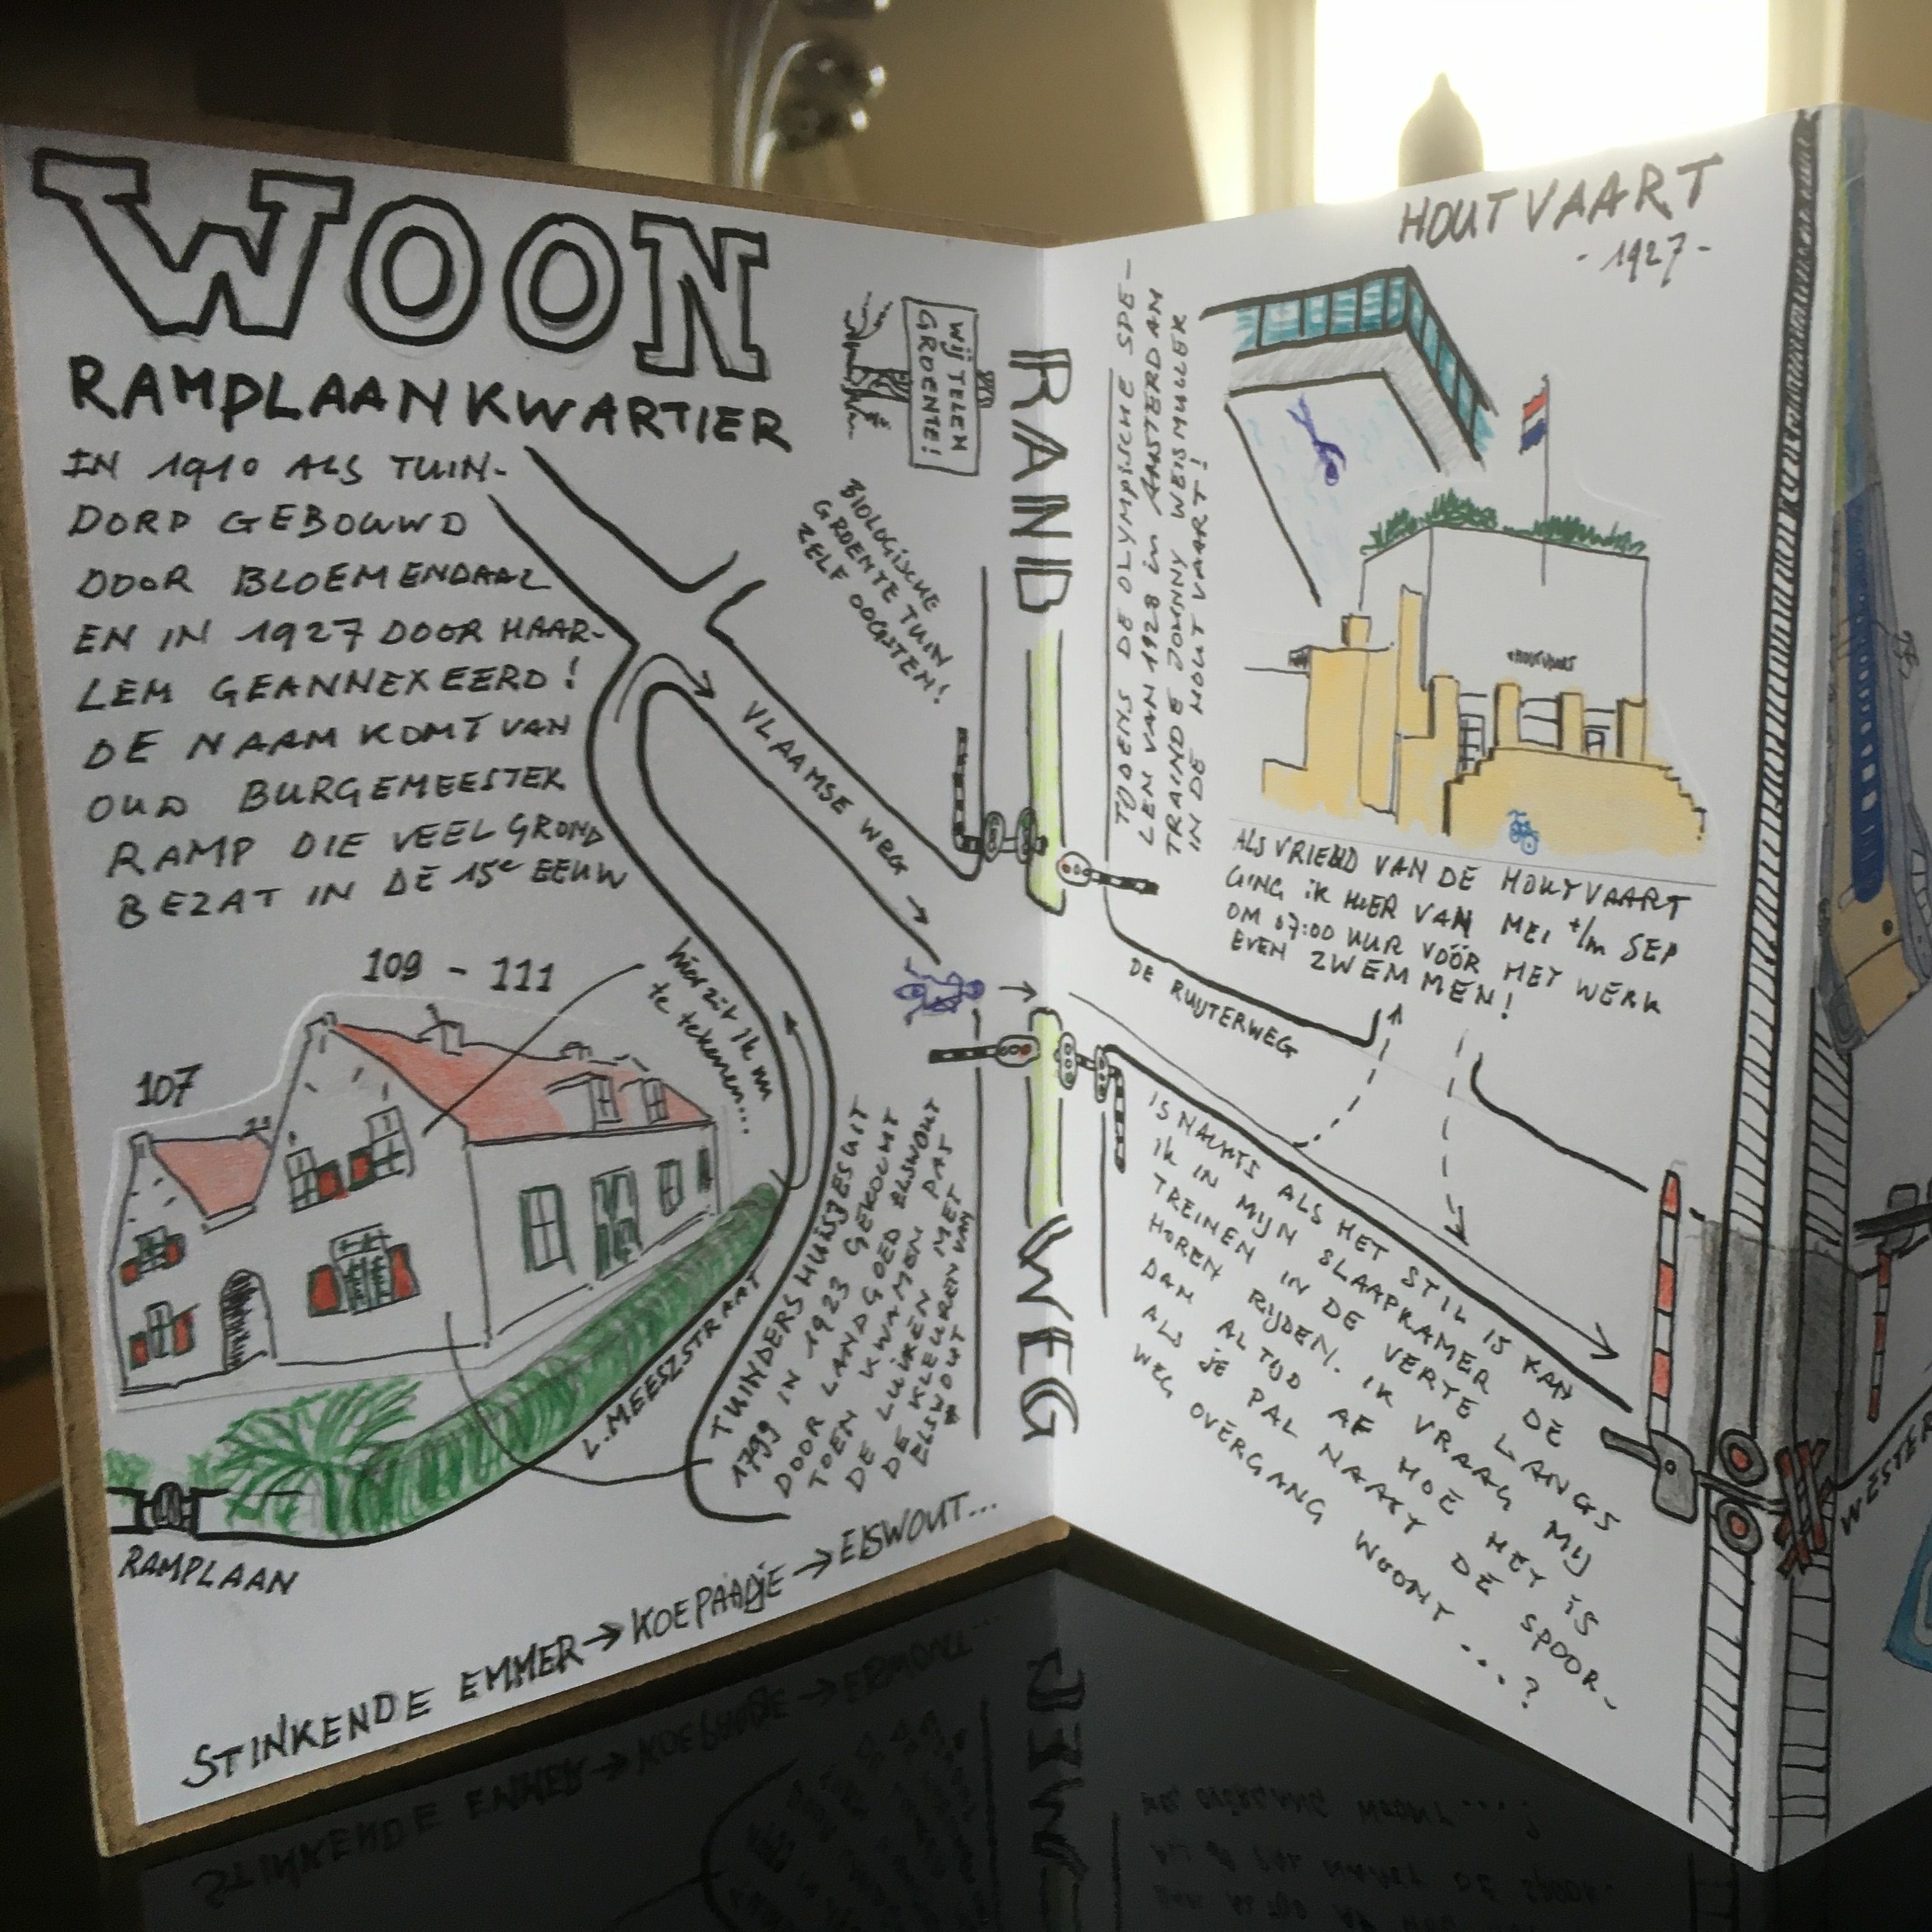 WOON
RAMPLAANKWARTIER
IN 1910 ALS TUIN-
DORP GEBOUWD
DOOR BLOEMENDAAL
EN IN 1927 DOOR HAAR-
LEM GEANNEXEERD!
DE NAAM KOMT VAN
OUD BURGEMEESTER
RAMP DIE VEEL GROND
BEZAT IN DE 15e EEUW
WIJ TELEN
GROENTE!
BIOLOGISCHE
GROENTE TUIN
ZELF OOGSTEN!
VLAAMSE WEG →
109 - 111
107
Hier zit ik nu
te tekenen...
TUINDERSHUISJES UIT
1799 IN 1923 GEKOCHT
DOOR LANDGOED ELSWOUT
TOEN KWAMEN PAS
DE LUIKEN MET
DE KLEUREN VAN
ELSWOUT
L. MEESZSTRAAT
RAMPLAAN
STINKENDE EMMER → KOEPAADJE → ELSWOUT...
RANDWEG
HOUTVAART
- 1927 -
TIJDENS DE OLYMPISCHE SPE-
LEN VAN 1928 in AMSTERDAM
TRAINDE JOHNNY WEISMULLER
IN DE HOUTVAART!
HOUTVAART
ALS VRIEND VAN DE HOUTVAART
GING IK HIER VAN MEI t/m SEP
OM 07:00 UUR VÓÓR HET WERK
EVEN ZWEMMEN!
DE RUIJTERWEG
IS NACHTS ALS HET STIL IS KAN
IK IN MIJN SLAAPKAMER DE
TREINEN IN DE VERTE LANGS
HOREN RIJDEN. IK VRAAG MIJ
DAN ALTIJD AF HOE HET IS
ALS JE PAL NAAST DE SPOOR-
WEG OVERGANG WOONT...?
WESTER